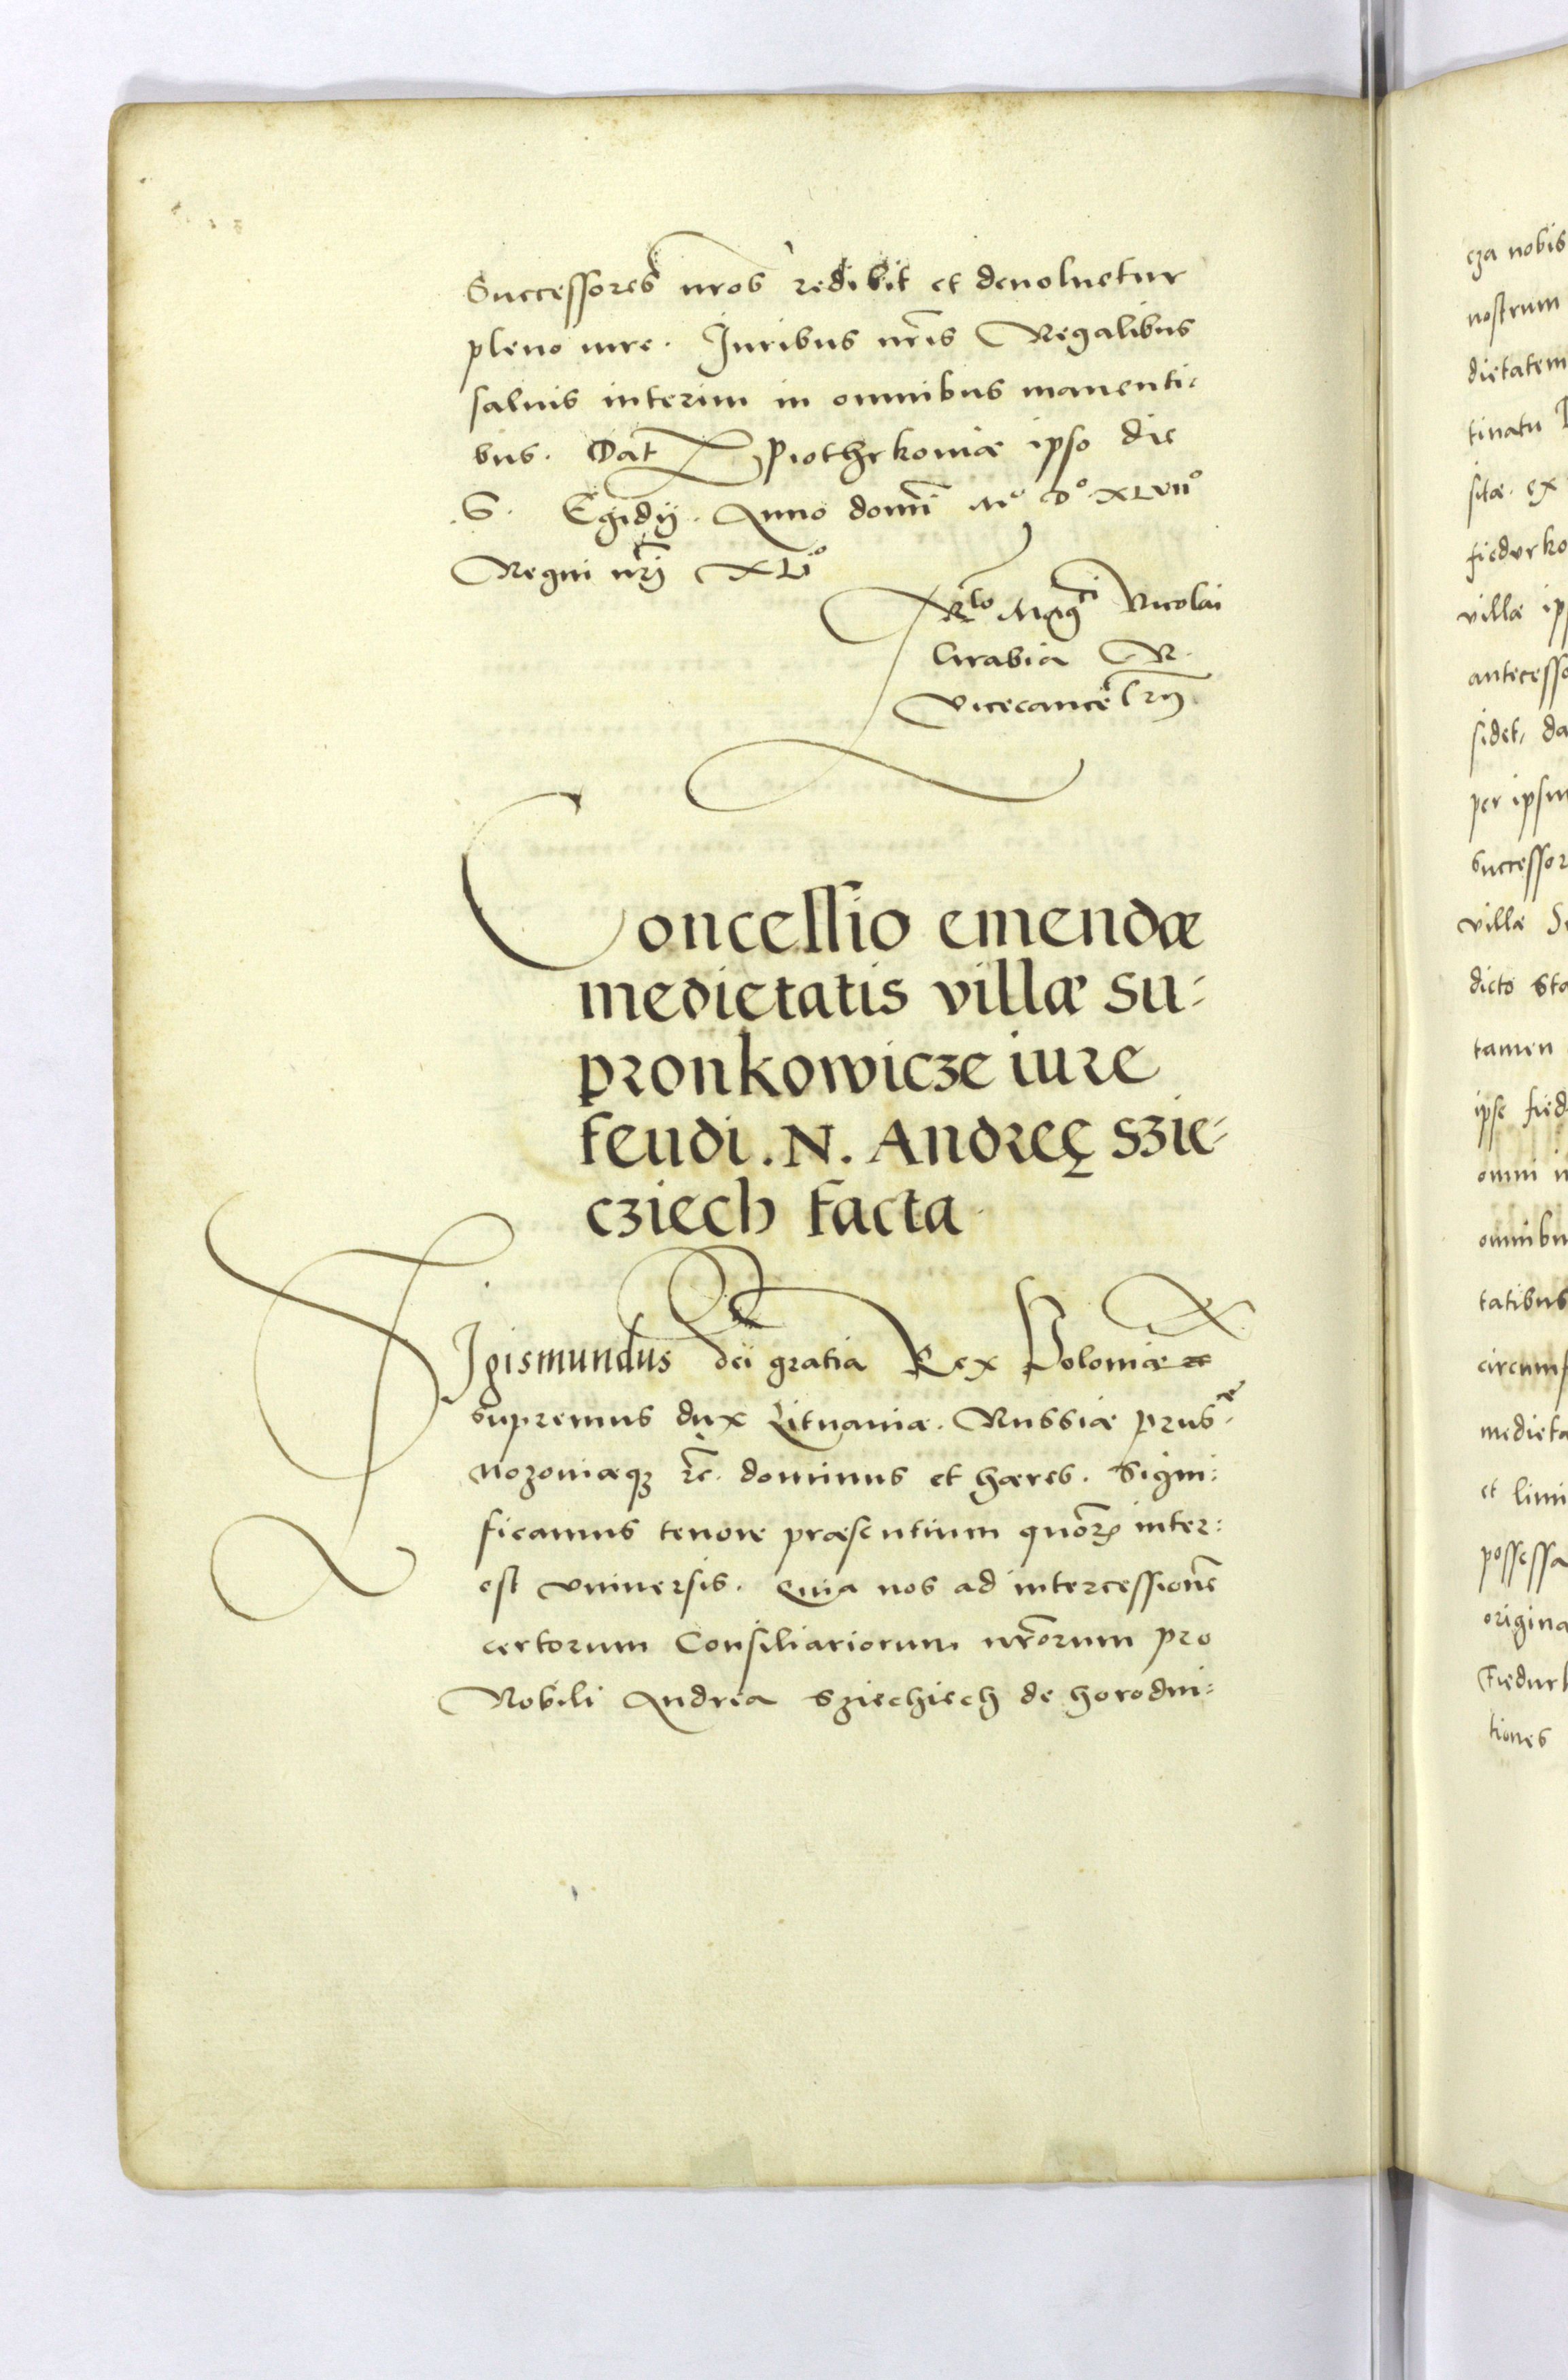 Successores nros redibit et deuoluetur
pleno iure. Iuribus nris Regalibus
saluis interim in omnibus manenti-
bus. Dat Piothrkoviæ ipso die
.S. Egidij. Anno domi M° D° XLVII°
Regni nri XLI°
Rlo Magci Nicolai
Grabia R.
Vicecancelrij
Concessio emendæ
medietatis villæ Su-
pronkowicze iure
feudi. N. Andreę Szie-
cziech facta.
SIgismundus dei gratia Rex Poloniæ
supremus dux Lituaniæ. Russiæ prusæ.
Mozoniæq3 rc. dominus et hæres. Signi-
ficamus tenore præsentium quor inter-
est vniuersis. Quia nos ad intercessione
certorum Consiliariorum nrorum pro
Nobili Andrea Sziechiech de horodni-
cza nobis
nostrum
dietatem
tinatu
sitæ. ex
fiedurko
villæ ip
antecesso
sidet, da
per ipsu
successor
villæ Su
dicto sta
tamen
ipse fied
omni i
omnibu
tatibus
circumf
medieta
et limi
possessa
origina
Fiedurk
tiones